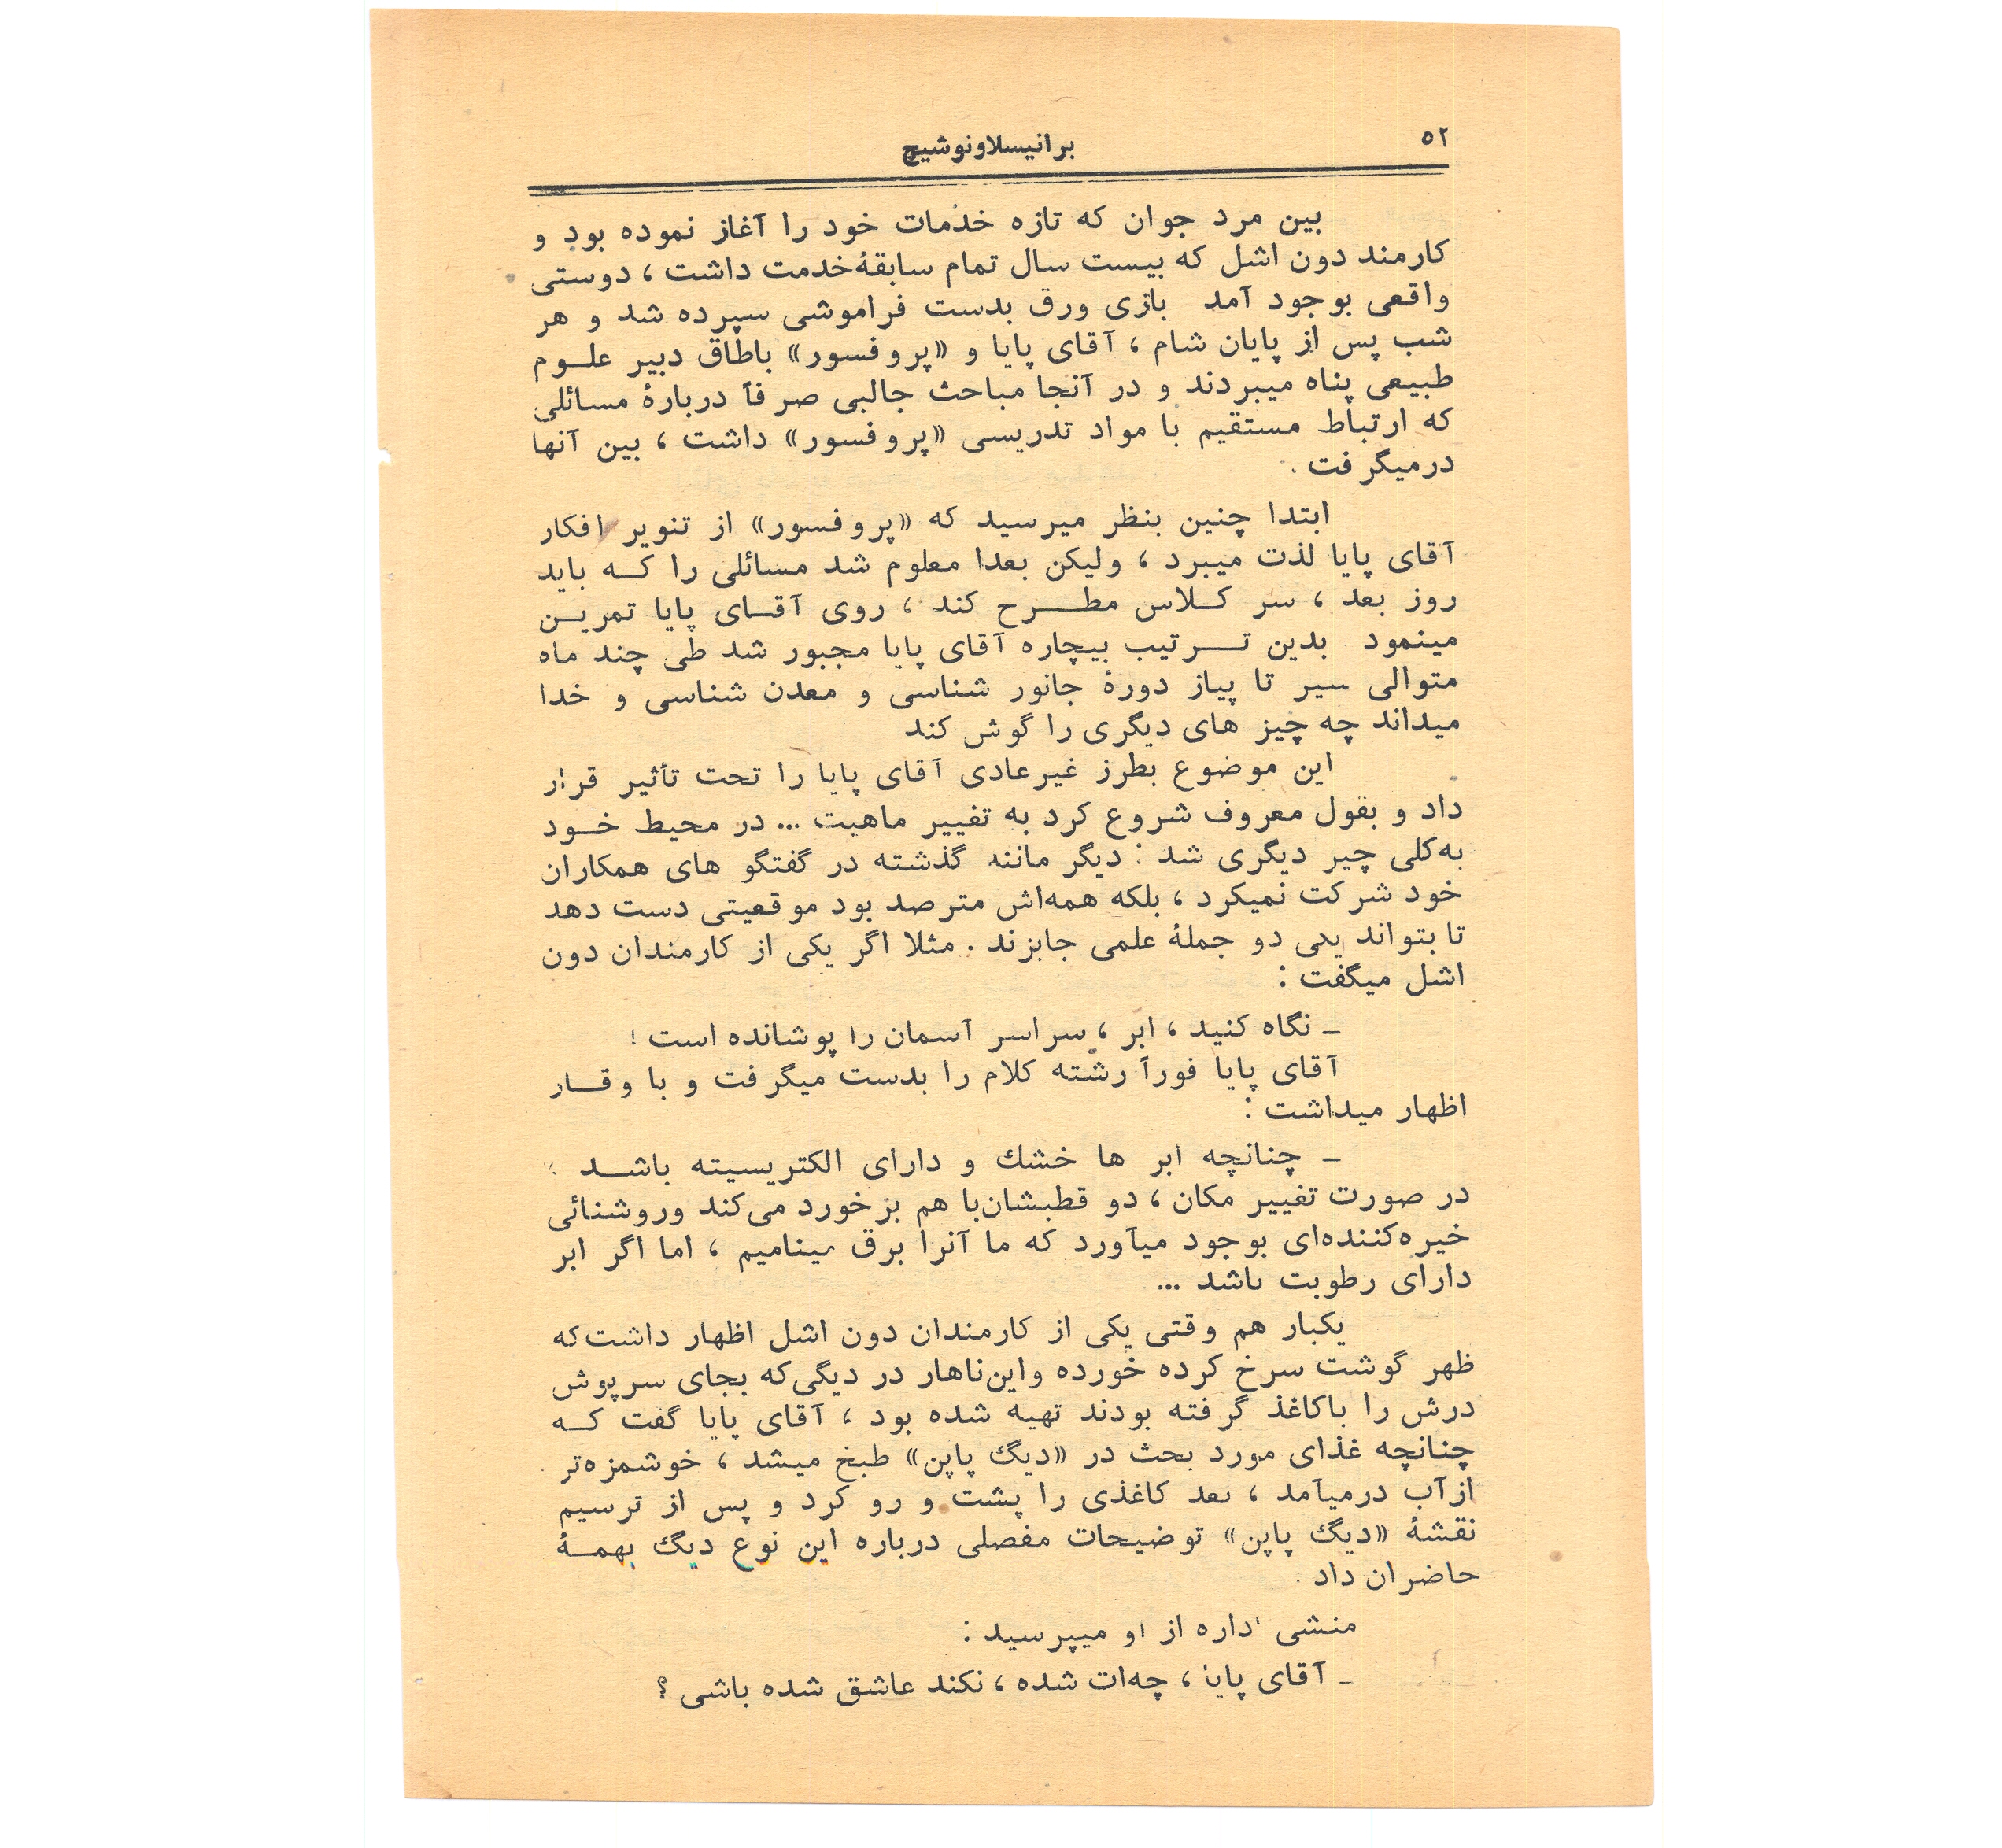 ۵۲
برانیسلاونوشیچ
بین مرد جوان که تازه خدمات خود را آغاز نموده بود و
کارمند دون اشل که بیست سال تمام سابقهٔ خدمت داشت ، دوستی
واقعی بوجود آمد بازی ورق بدست فراموشی سپرده شد و هر
شب پس از پایان شام ، آقای پایا و «پروفسور» باطاق دبیر علـوم
طبیعی پناه میبردند و در آنجا مباحث جالبی صرفاً دربارهٔ مسائلی
که ارتباط مستقیم با مواد تدریسی «پروفسور» داشت ، بین آنها
درمیگرفت .
ابتدا چنین بنظر میرسید که «پروفسور» از تنویر افکار
آقای پایا لذت میبرد ، ولیکن بعدا معلوم شد مسائلی را کـه باید
روز بعد ، سر کـلاس مطـرح کند ، روی آقـای پایا تمریـن
مینمود بدین تـرتیب بیچاره آقای پایا مجبور شد طی چند ماه
متوالی سیر تا پیاز دورهٔ جانور شناسی و معدن شناسی و خدا
میداند چه چیز های دیگری را گوش کند
این موضوع بطرز غیرعادی آقای پایا را تحت تأثیر قرار
داد و بقول معروف شروع کرد به تغییر ماهیت ... در محیط خـود
به‌کلی چیز دیگری شد : دیگر مانند گذشته در گفتگو های همکاران
خود شرکت نمیکرد ، بلکه همه‌اش مترصد بود موقعیتی دست دهد
تا بتواند یکی دو جملهٔ علمی جابزند . مثلا اگر یکی از کارمندان دون
اشل میگفت :
ـ نگاه کنید ، ابر ، سراسر آسمان را پوشانده است !
آقای پایا فوراً رشته کلام را بدست میگرفت و با وقـار
اظهار میداشت :
ـ چنانچه ابر ها خشك و دارای الکتریسیته باشـد ؛
در صورت تغییر مکان ، دو قطبشان‌با هم برخورد می‌کند وروشنائی
خیره‌کننده‌ای بوجود میآورد که ما آنرا برق مینامیم ، اما اگر ابر
دارای رطوبت باشد ...
یکبار هم وقتی یکی از کارمندان دون اشل اظهار داشت‌که
ظهر گوشت سرخ کرده خورده واین‌ناهار در دیگی‌که بجای سرپوش
درش را باکاغذ گرفته بودند تهیه شده بود ، آقای پایا گفت کـه
چنانچه غذای مورد بحث در «دیگ پاپن» طبخ میشد ، خوشمزه‌تر
ازآب درمیآمد ، بعد کاغذی را پشت و رو کرد و پس از ترسیم
نقشهٔ «دیگ پاپن» توضیحات مفصلی درباره این نوع دیگ بهمـهٔ
حاضران داد .
منشی اداره از او میپرسید :
ـ آقای پایا ، چه‌ات شده ، نکند عاشق شده باشی ؟